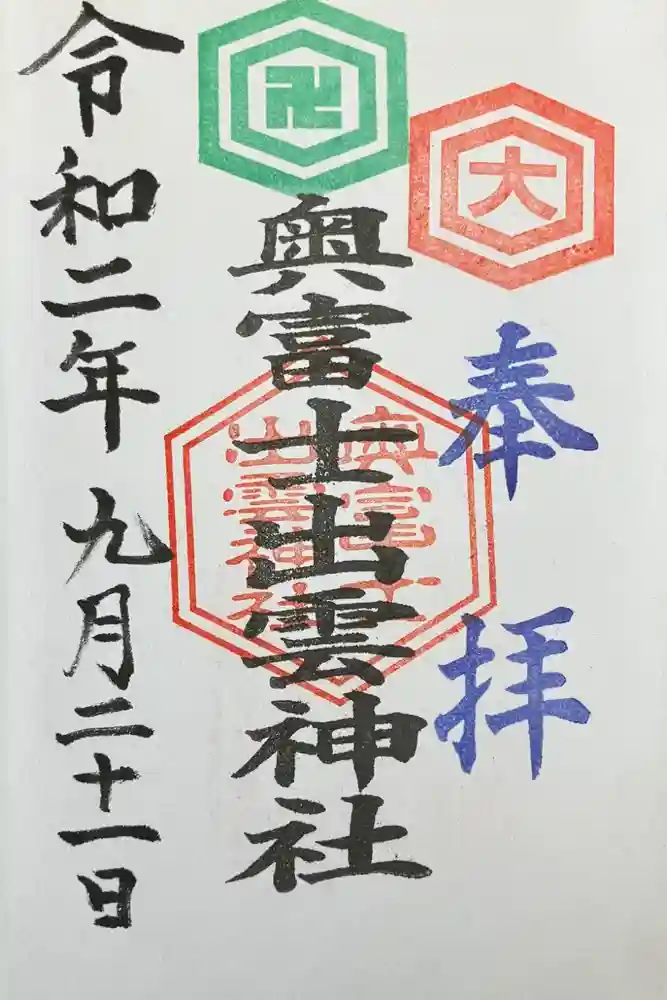 大
奉拝
卍
奥富士出雲神社
奥富士
出雲神社
令和二年九月二十一日